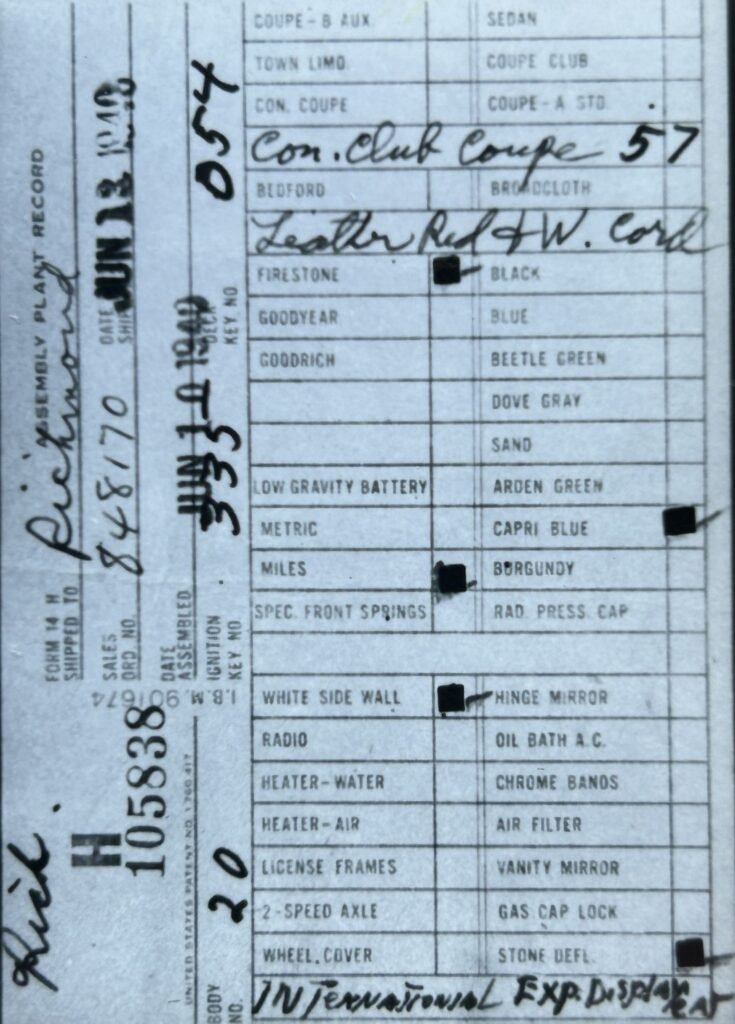 COUPE-B AUX. SEDAN
TOWN LIMO. COUPE CLUB
CON. COUPE COUPE-A STD.
Con. Club Coupe 57
BEDFORD BROADCLOTH
Leather Red & W. Cord
FIRESTONE BLACK
GOODYEAR BLUE
GOODRICH BEETLE GREEN
DOVE GRAY
SAND
LOW GRAVITY BATTERY ARDEN GREEN
METRIC CAPRI BLUE
MILES BURGUNDY
SPEC. FRONT SPRINGS RAD. PRESS. CAP
WHITE SIDE WALL HINGE MIRROR
RADIO OIL BATH A.C.
HEATER-WATER CHROME BANDS
HEATER-AIR AIR FILTER
LICENSE FRAMES VANITY MIRROR
2-SPEED AXLE GAS CAP LOCK
WHEEL COVER STONE DEFL.
INTERNATIONAL EXP. DISPLAY CAR
Rich.
ASSEMBLY PLANT RECORD
FORM 14 H
SHIPPED TO Richmond
H
105838
SALES
ORD. NO. 848170
DATE
SHIP
JUN 12 1940
I.B.M. 901674
DATE
ASSEMBLED JUN 10 1940
UNITED STATES PATENT NO. 1,760,417
BODY
NO. 20
IGNITION
KEY NO. 335
DECK
KEY NO. 054